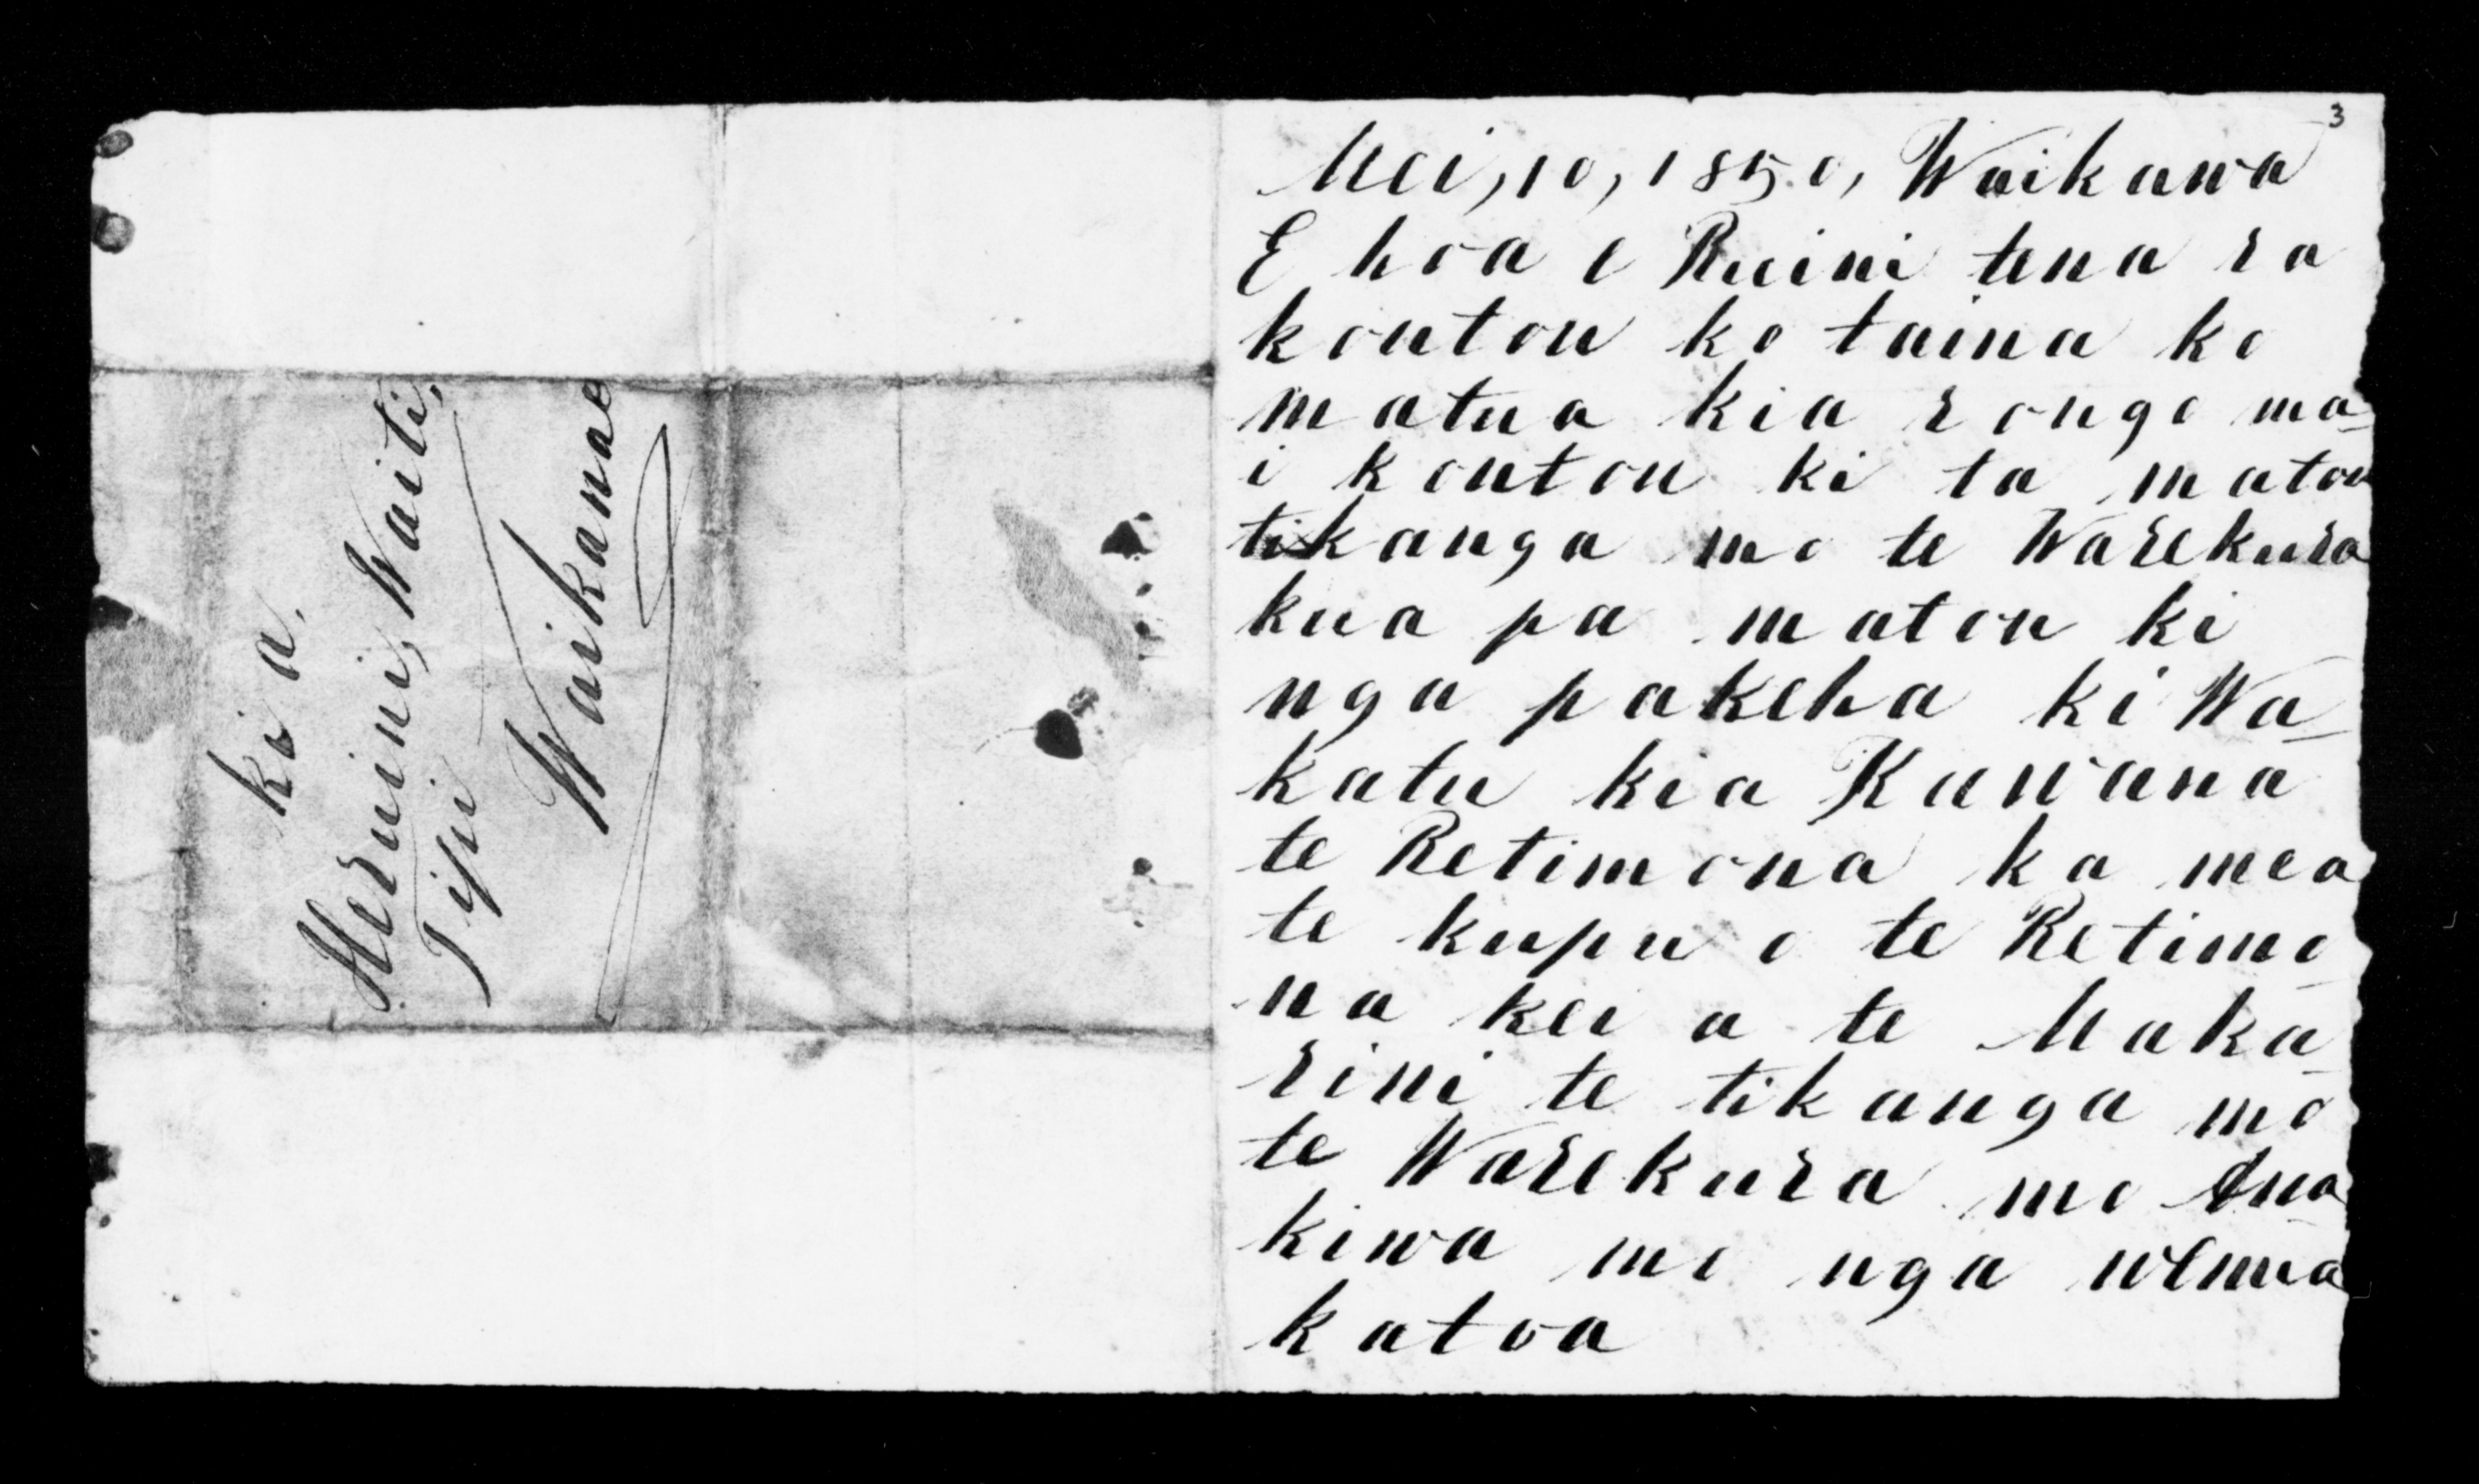 kia.
Heruini, Waiti,
Tipi
Waikanae
3
Mei, 10, 1850, Waikawa
E hoa e Ruini tena ra
koutou ko taina ko
matua kia rongo ma-
i koutou ki ta matou
tikanga mo te Warekura
kua pa matou ki
nga pakeha ki Wa-
katu kia Kawana
te Retimona ka mea
te kupu o te Retimo-
na kei a te Maka-
rini te tikanga mo
te Warekura mo Ana-
kiwa mo nga wenua
katoa